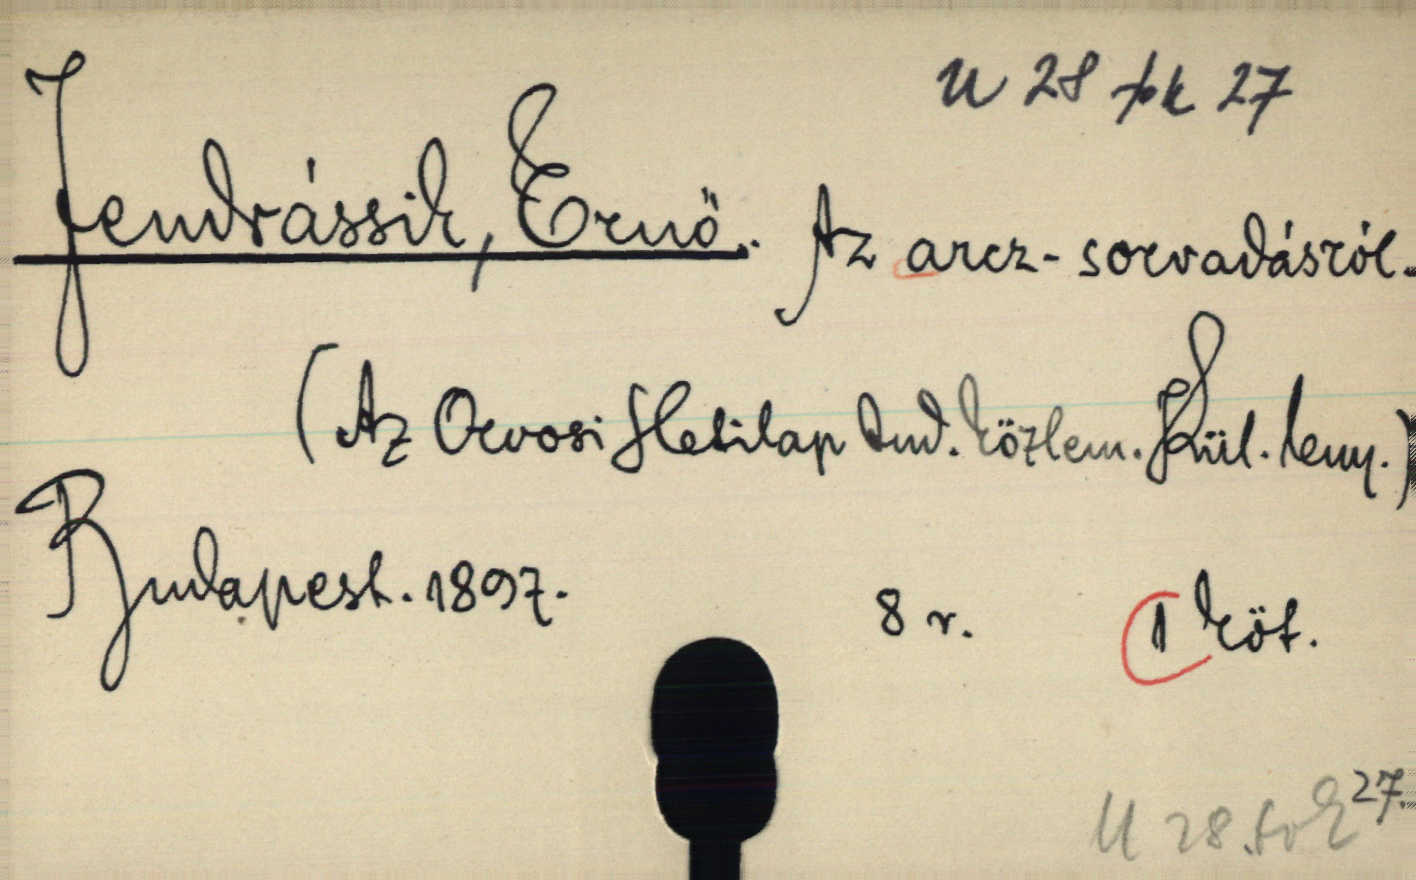 U 28 tok 27
Jendrássik, Ernő. Az arcz-sorvadásról.
(Az Orvosi Hetilap tud. közlem. Kül. leny.)
Budapest. 1897. 8 r. 1 köt.
U 28. tok 27.